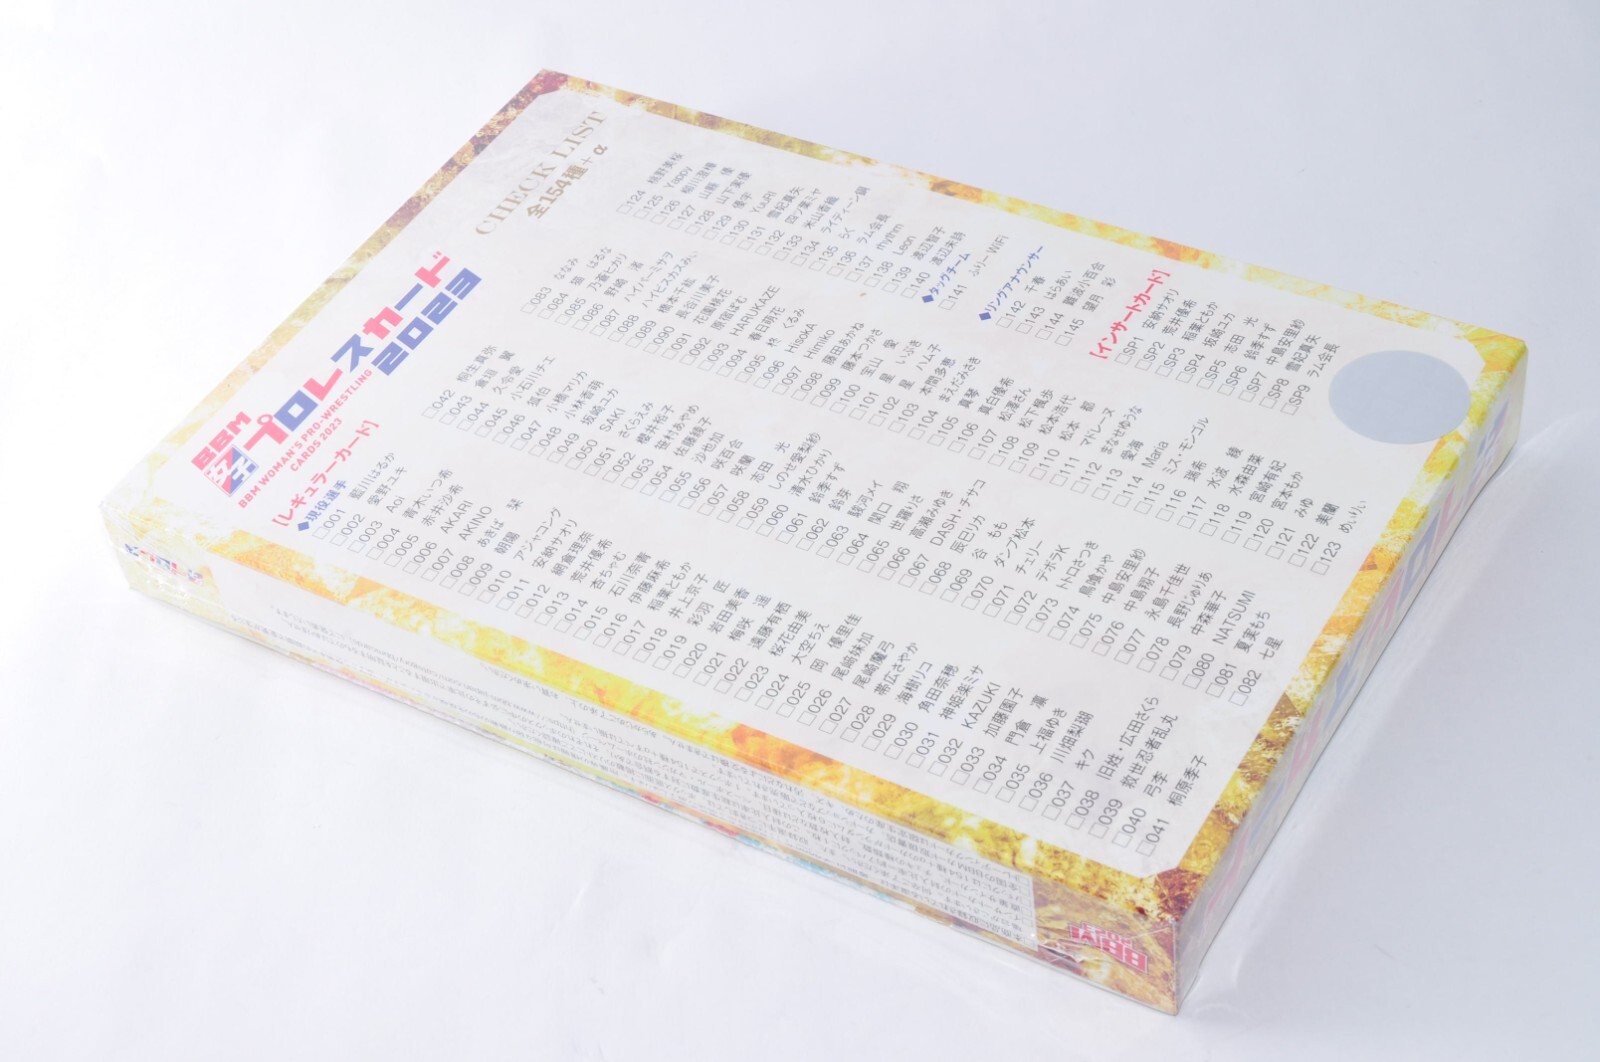 BBM
女子プロレスカード
2023
BBM WOMAN'S PRO-WRESTLING
CARDS 2023
CHECK LIST
全154種+α
[レギュラーカード]
◆現役選手
□001 藍川はるか
□002 愛野ユキ
□003 Aoi
□004 青木いつ希
□005 赤井沙希
□006 AKARI
□007 AKINO
□008 あきば 栞
□009 朝陽
□010 アジャコング
□011 安納サオリ
□012 網倉理奈
□013 荒井優希
□014 杏ちゃむ
□015 石川奈青
□016 伊藤麻希
□017 稲葉ともか
□018 井上京子
□019 彩羽 匠
□020 岩田美香
□021 梅咲 遥
□022 遠藤有栖
□023 桜花由美
□024 大空ちえ
□025 岡 優里佳
□026 尾﨑妹加
□027 尾崎魔弓
□028 帯広さやか
□029 海樹リコ
□030 角田奈穂
□031 神姫楽ミサ
□032 KAZUKI
□033 加藤園子
□034 門倉 凛
□035 上福ゆき
□036 川畑梨瑚
□037 キク
□038 旧姓・広田さくら
□039 救世忍者乱丸
□040 弓李
□041 桐原季子
□042 桐生真弥
□043 倉垣 翼
□044 久令愛
□045 小石川チエ
□046 狐伯
□047 小橋マリカ
□048 小林香萌
□049 坂崎ユカ
□050 SAKI
□051 さくらえみ
□052 櫻井裕子
□053 笹村あやめ
□054 佐藤綾子
□055 沙也加
□056 咲百合
□057 咲蘭
□058 志田 光
□059 しのせ愛梨紗
□060 清水ひかり
□061 鈴季すず
□062 鈴芽
□063 駿河メイ
□064 関口 翔
□065 世羅りさ
□066 高瀬みゆき
□067 DASH・チサコ
□068 辰巳リカ
□069 谷 もも
□070 ダンプ松本
□071 チェリー
□072 デボラK
□073 トトロさつき
□074 鳥喰かや
□075 中島安里紗
□076 中島翔子
□077 永島千佳世
□078 長野じゅりあ
□079 中森華子
□080 NATSUMI
□081 夏実もち
□082 七星
□083 ななみ
□084 猫 はるな
□085 乃蒼ヒカリ
□086 野崎 渚
□087 ハイパーミサヲ
□088 ハイビスカスみぃ
□089 橋本千紘
□090 長谷川美子
□091 花園桃花
□092 原宿ぽむ
□093 HARUKAZE
□094 春日萌花
□095 柊 くるみ
□096 HisokA
□097 Himiko
□098 藤田あかね
□099 藤本つかさ
□100 宝山 愛
□101 星 いぶき
□102 星 ハム子
□103 本間多恵
□104 まえだみさき
□105 真琴
□106 真白優希
□107 松澤さん
□108 松下楓歩
□109 松本浩代
□110 松本 都
□111 マドレーヌ
□112 まなせゆうな
□113 愛海
□114 Maria
□115 ミス・モンゴル
□116 瑞希
□117 水波 綾
□118 水森由菜
□119 宮崎有妃
□120 宮本もか
□121 みゆ
□122 美蘭
□123 めいりぃ
□124 桃野美桜
□125 Yappy
□126 柳川澄樺
□127 山縣 優
□128 山下実優
□129 優宇
□130 YuuRI
□131 雪妃真矢
□132 四ツ葉ミヤ
□133 米山香織
□134 ライディーン鋼
□135 らく
□136 ラム会長
□137 rhythm
□138 Leon
□139 渡辺智子
□140 渡辺未詩
◆タッグチーム
□141 ふりーWiFi
◆リングアナウンサー
□142 千春
□143 はらあい
□144 難波小百合
□145 望月 彩
[インサートカード]
□SP1 安納サオリ
□SP2 荒井優希
□SP3 稲葉ともか
□SP4 坂崎ユカ
□SP5 志田 光
□SP6 鈴季すず
□SP7 中島安里紗
□SP8 雪妃真矢
□SP9 ラム会長